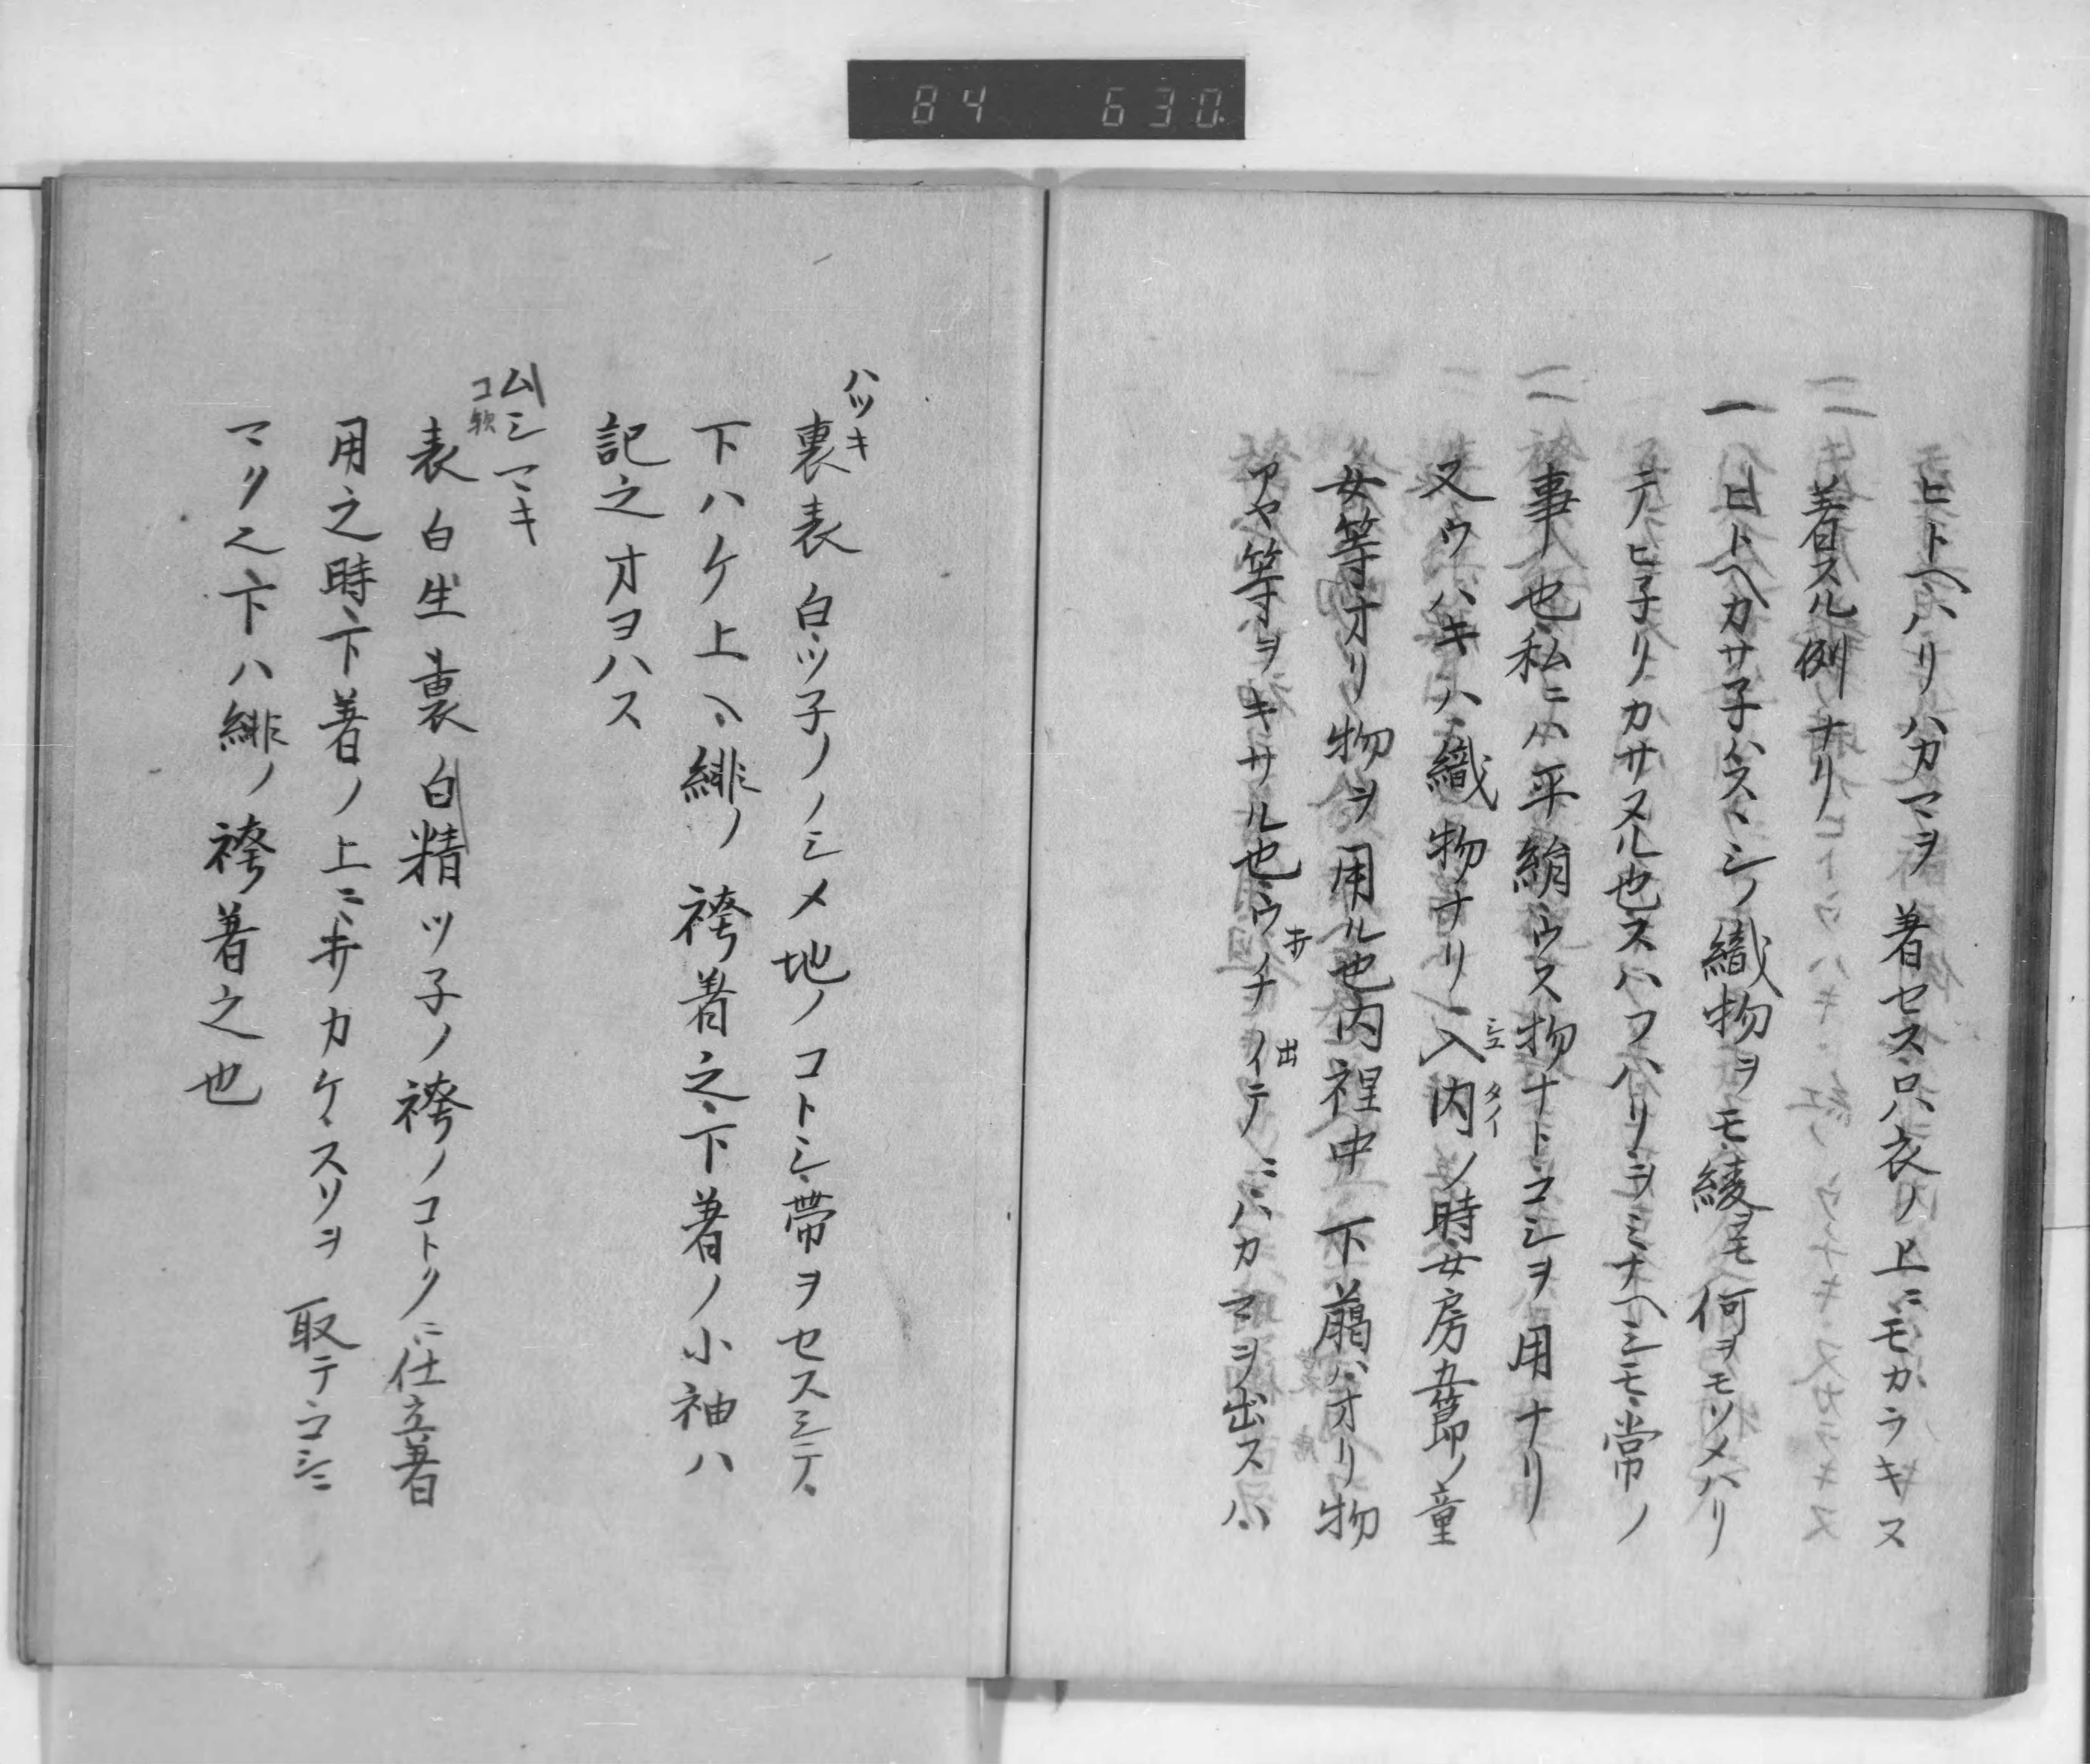 84 630
ヒトヘハリハカマヲ著セス只衣ノ上ニモカラキス
着スル例ナリ
一ヒトヘカサ子ハス丶シノ織物ヲモ綾ヲモ何ヲモソメハリ
テヒ子リカサヌル也スハフハリヲミナヘシモ常ノ
事也私ニハ平絹ウス物ナトコシヲ用ナリ
又ウハキハ織物ナリ入内ノ時女房五節ノ童
シユ タイ
女等オリ物ヲ用ル也内裡中下﨟ハオリ物
アヤ等ヲキサル也ウチイテノミハカマヲ出スハ
出
ハツキ
裏表白ツ子ノノシメ地ノコトシ帯ヲセスシテ
下ハケ上ヘ緋ノ袴著之下著ノ小袖ハ
記之オヨハス
ムシマキ
コ歟
表白生裏白精ツ子ノ袴ノコトクニ仕立著
用之時下著ノ上ニキカケスソヲ取テコシニ
マクル下ハ緋ノ袴著之也